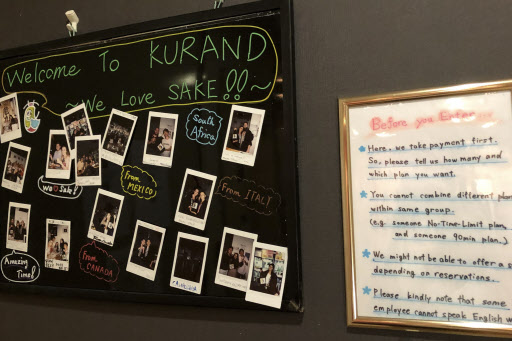 Welcome To KURAND
~We Love SAKE!!~
South Africa!
We Sake!
From MEXICO
From ITALY
Amazing Time!
From CANADA
Before you Enter
Here, we take payment first.
So, please tell us how many and
which plan you want.
You cannot combine different
within same group.
(e.g. someone No-Time-Limit plan,
and someone 90min plan.)
We might not be able to offer a
depending on reservations.
Please kindly note that some
employee cannot speak English